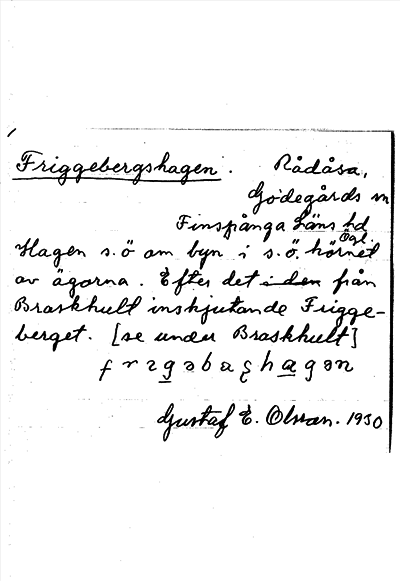 Friggebergshagen. Rådåsa,
Godegårds sn
Finspånga läns hd
Ögl.
Hagen s.ö om byn i s.ö. hörnet
av ägorna. Efter det i den från
Braskhult inskjutande Frigge-
berget. [se under Braskhult]
Gustaf E. Olsson. 1930